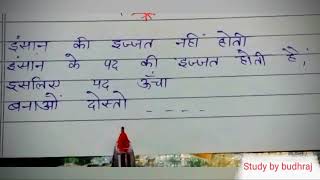 इंसान की इज्जत नहीं होती
इंसान के पद की इज्जत होती है,
इसलिए पद ऊँचा
बनाओं दोस्तो ----
Study by budhraj